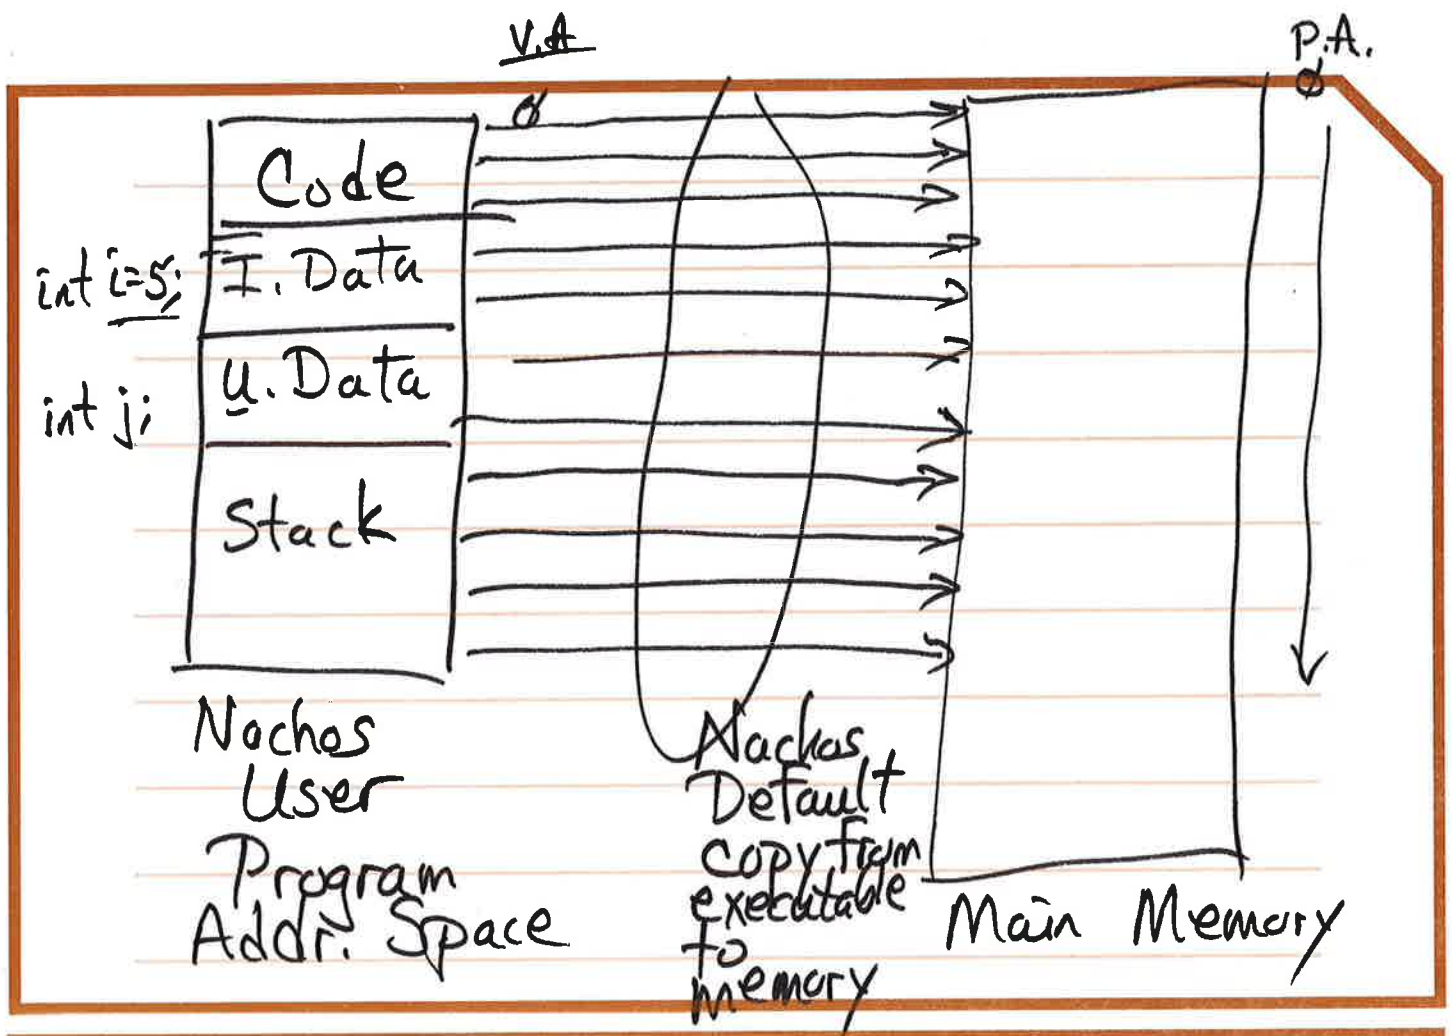 V.A
P.A.
0
0
Code
int i=5;
I. Data
U. Data
int j;
Stack
Nachos
User
Program
Addr. Space
Nachos
Default
copy from
executable
to
memory
Main Memory